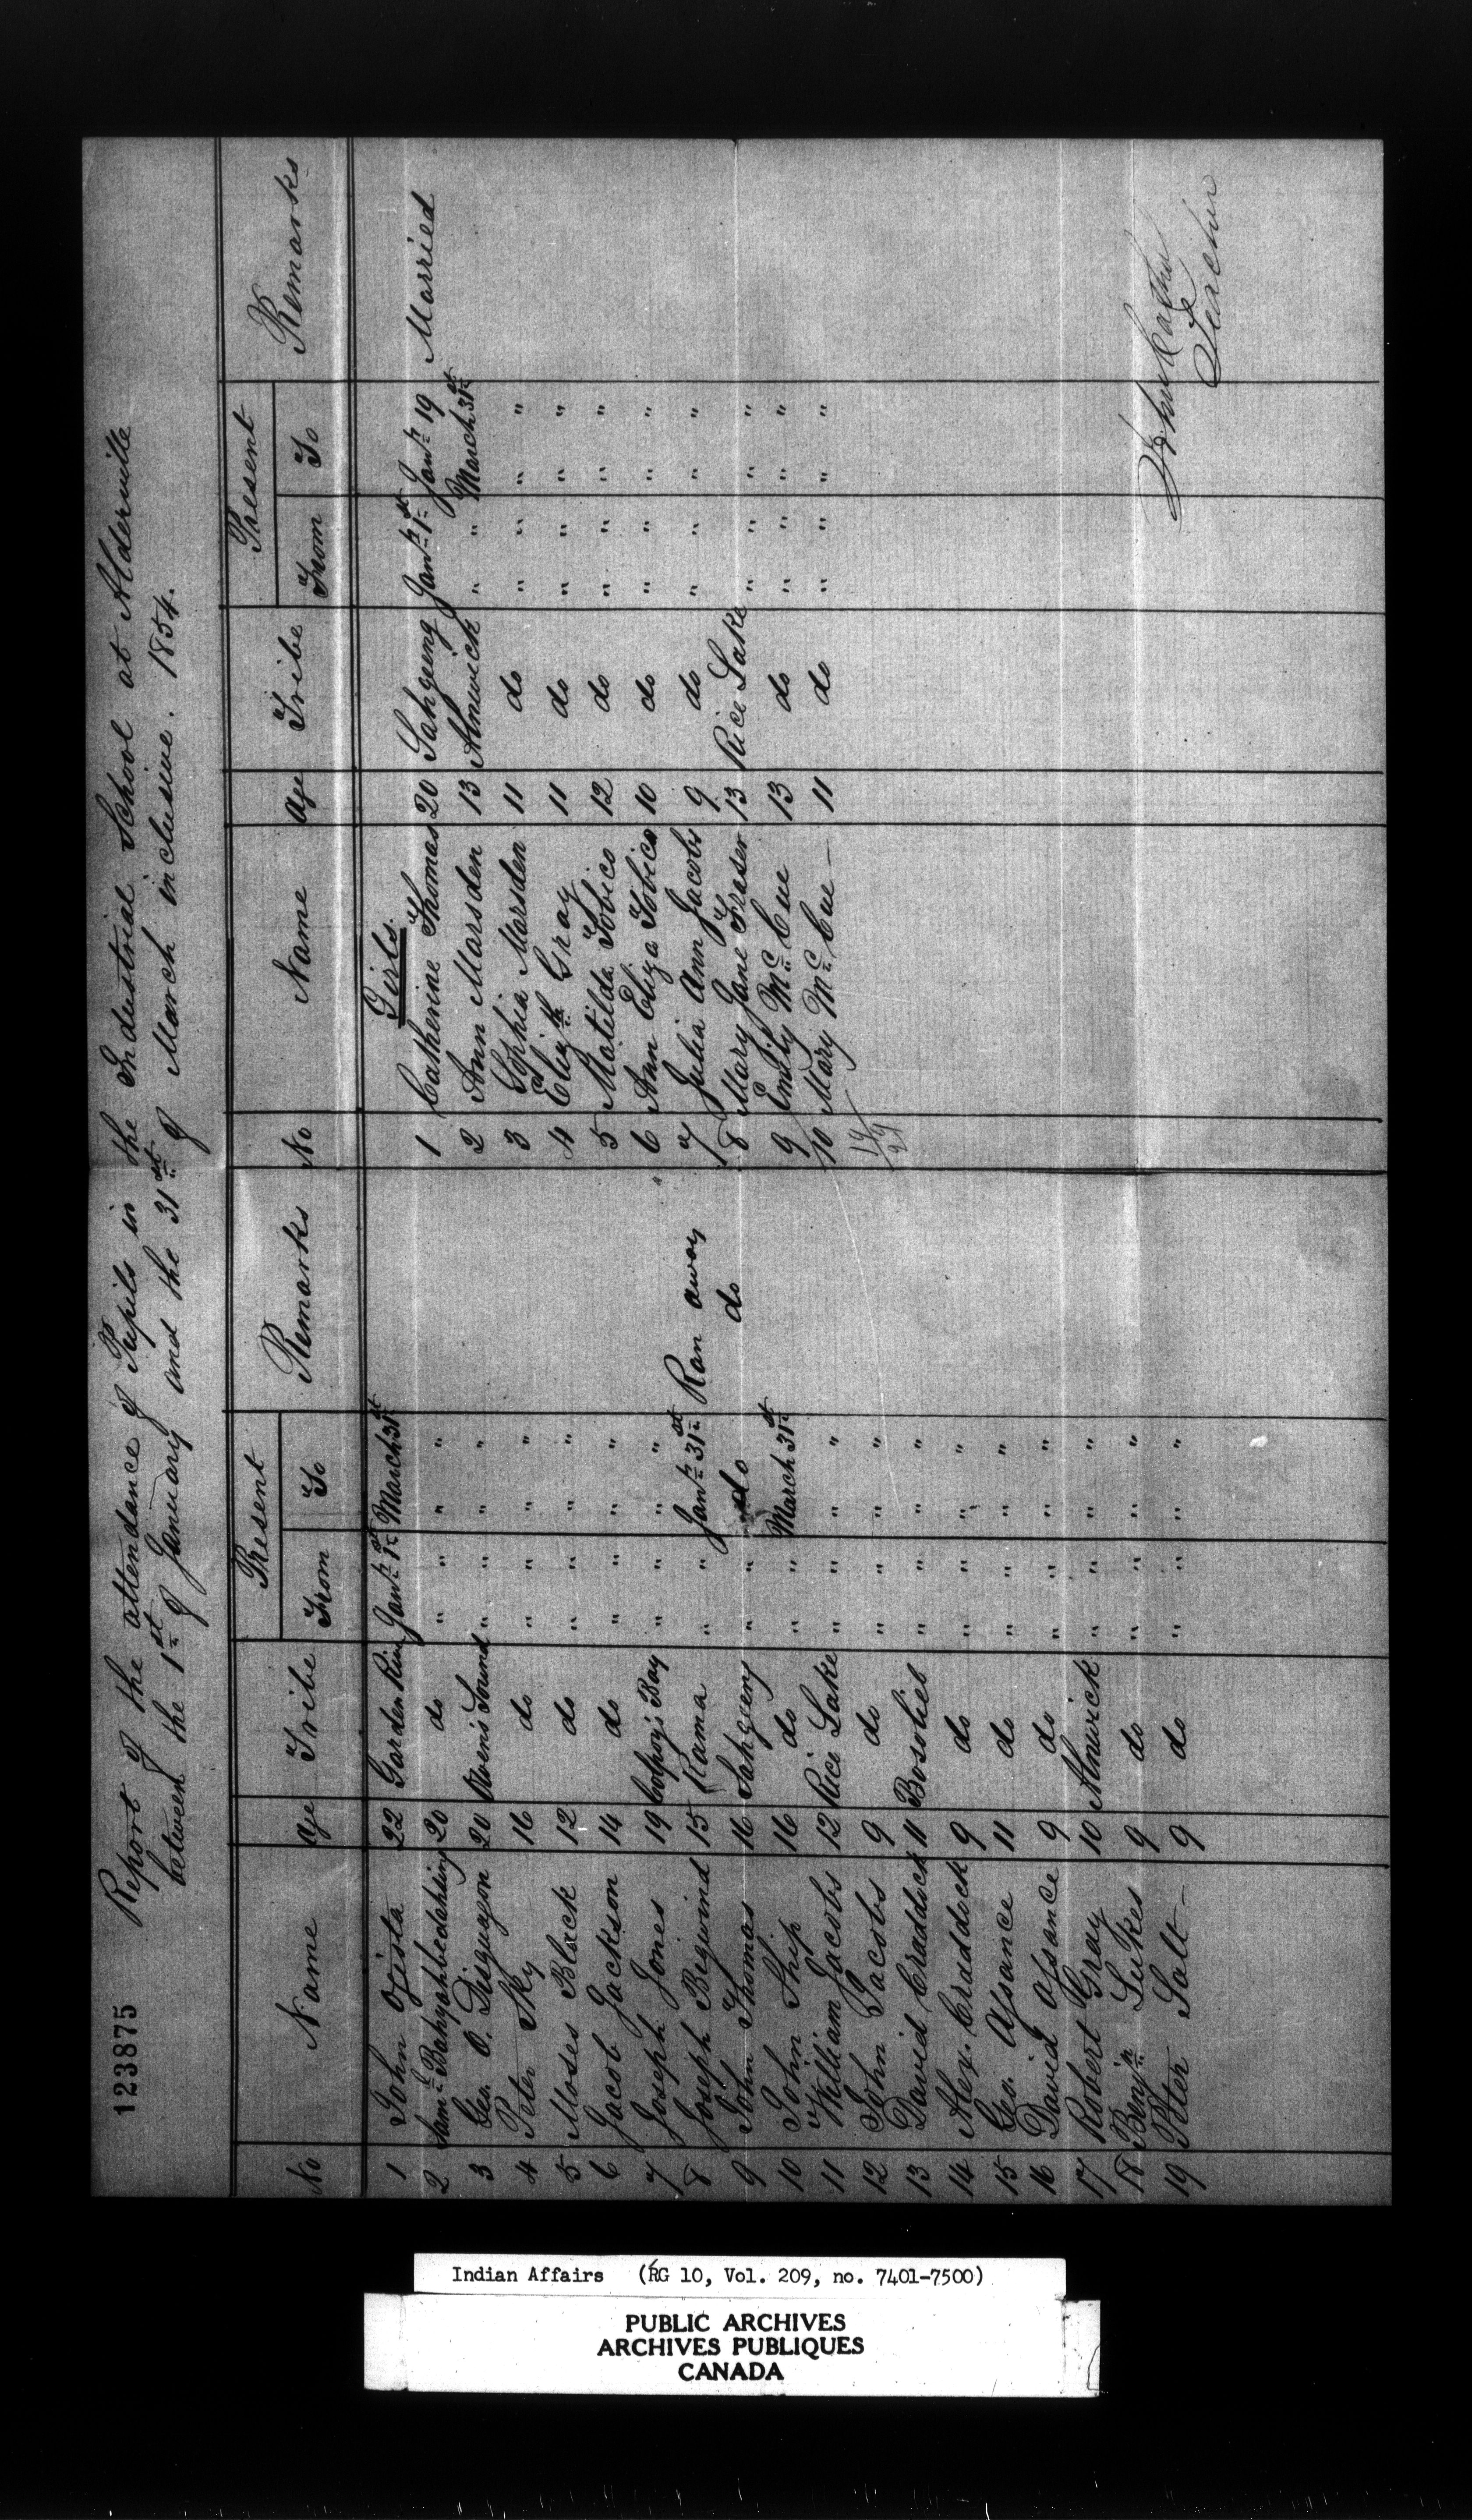 123875
Report of the attendance of Pupils in the Industrial School at Alderville
between the 1st of January and the 31st of March inclusive. 1854.
No Name Age Tribe Present From To Remarks
1 John Ogista 22 Garden River Jany 1st March 31st
2 Saml Bahyahbedahking 20 do " " " "
3 Geo. O. Disguagon 20 Owen's Sound " " " "
4 Peter Sky 16 do " " " "
5 Moses Black 12 do " " " "
6 Jacob Jackson 14 do " " " "
7 Joseph Jones 19 Colpoy's Bay " " " "
8 Joseph Begwind 15 Rama " " Jany 31st Ran away
9 John Thomas 16 Sahgeeng " " do do
10 John Ship 16 do " " March 31st
11 William Jacobs 12 Rice Lake " " " "
12 John Jacobs 9 do " " " "
13 David Craddock 11 Bosoliel " " " "
14 Alex. Craddock 9 do " " " "
15 Geo. Assance 11 do " " " "
16 David Assance 9 do " " " "
17 Robert Gray 10 Alnwick " " " "
18 Benjn Lukes 9 do " " " "
19 Peter Salt – 9 do " " " "
No Name Age Tribe Present From To Remarks
Girls.
1 Catherine Thomas 20 Sahgeeng Jany 1st Jany 19 Married
2 Ann Marsden 13 Alnwick " " March 31st
3 Sophia Marsden 11 do " " " "
4 Elizth Gray 11 do " " " "
5 Matilda Tobico 12 do " " " "
6 Ann Eliza Tobico 10 do " " " "
7 Julia Ann Jacobs 9 do " " " "
8 Mary Jane Fraser 13 Rice Lake " " " "
9 Emily McCue 13 do " " " "
10 Mary McCue – 11 do " " " "
19
29
John
Teacher
Indian Affairs (RG 10, Vol. 209, no. 7401-7500)
PUBLIC ARCHIVES
ARCHIVES PUBLIQUES
CANADA